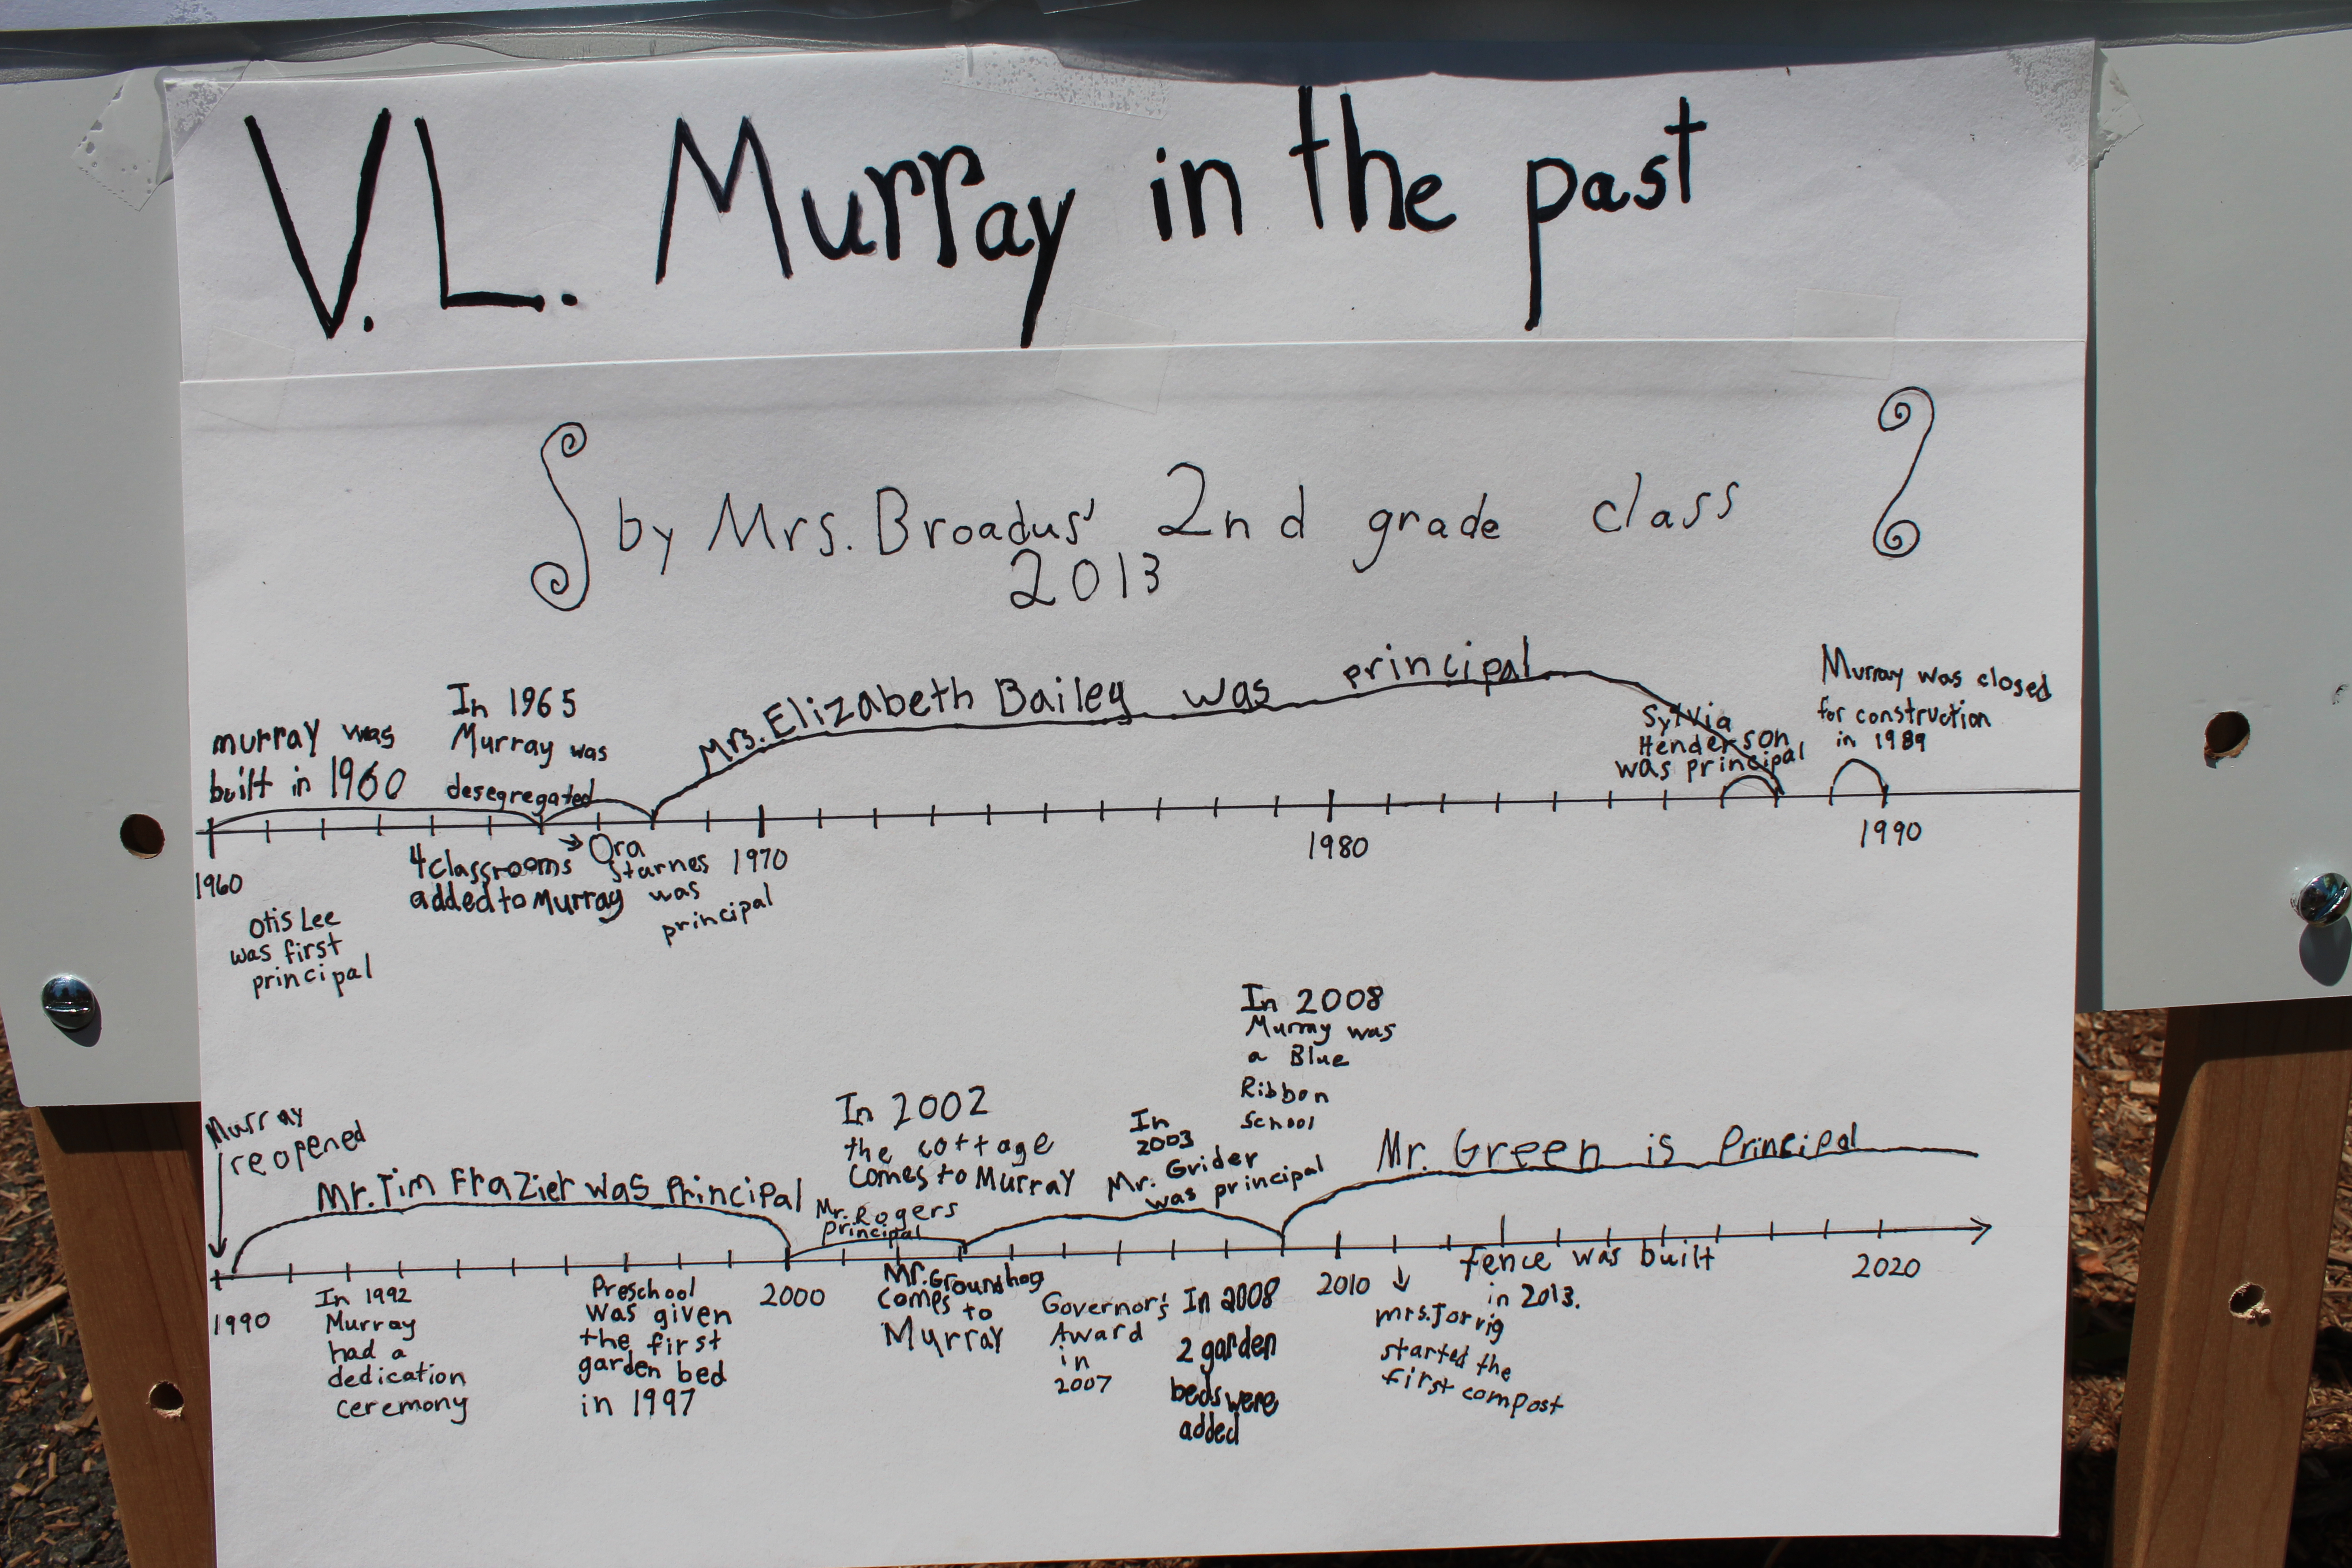 V.L. Murray in the past
by Mrs. Broadus' 2nd grade class
2013
murray was
built in 1960
In 1965
Murray was
desegregated
Mrs. Elizabeth Bailey was principal
Sylvia
Henderson
was principal
Murray was closed
for construction
in 1989
1960
1970
1980
1990
Otis Lee
was first
principal
4 classrooms
added to Murray
Ora
Starnes
was
principal
Murray
reopened
Mr. Tim Frazier was Principal
In 2002
the cottage
comes to Murray
Mr. Rogers
Principal
In
2003
Mr. Grider
was principal
In 2008
Murray was
a Blue
Ribbon
School
Mr. Green is Principal
1990
2000
2010
2020
In 1992
Murray
had a
dedication
ceremony
Preschool
was given
the first
garden bed
in 1997
Mr. Groundhog
comes to
Murray
Governor's
Award
in
2007
In 2008
2 garden
beds were
added
mrs. Jorvig
started the
first compost
fence was built
in 2013.